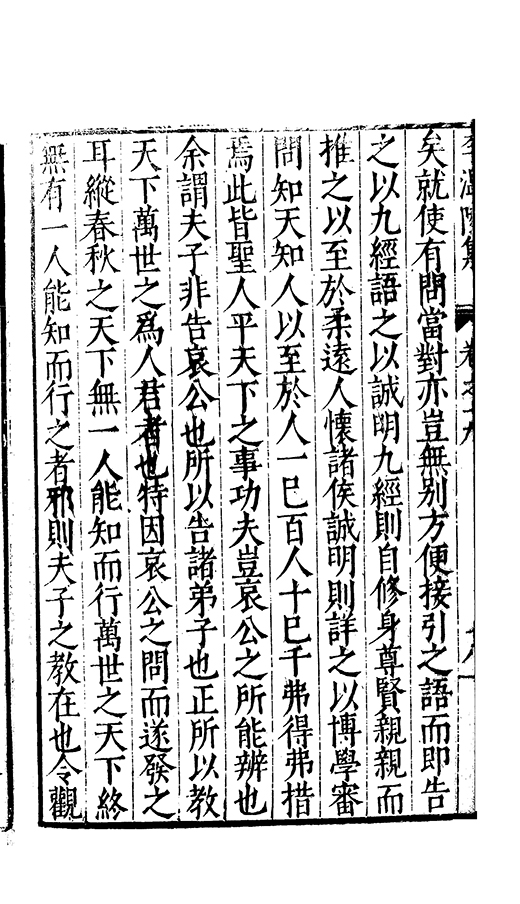 李溫陵集 卷之十九
矣就使有問當對亦豈無別方便接引之語而即告
之以九經語之以誠明九經則自修身尊賢親親而
推之以至於柔遠人懷諸侯誠明則詳之以博學審
問知天知人以至於人一巳百人十巳千弗得弗措
焉此皆聖人平天下之事功夫豈哀公之所能辨也
余謂夫子非告哀公也所以告諸弟子也正所以教
天下萬世之爲人君者也特因哀公之問而遂發之
耳縱春秋之天下無一人能知而行萬世之天下終
無有一人能知而行之者邪則夫子之教在也今觀